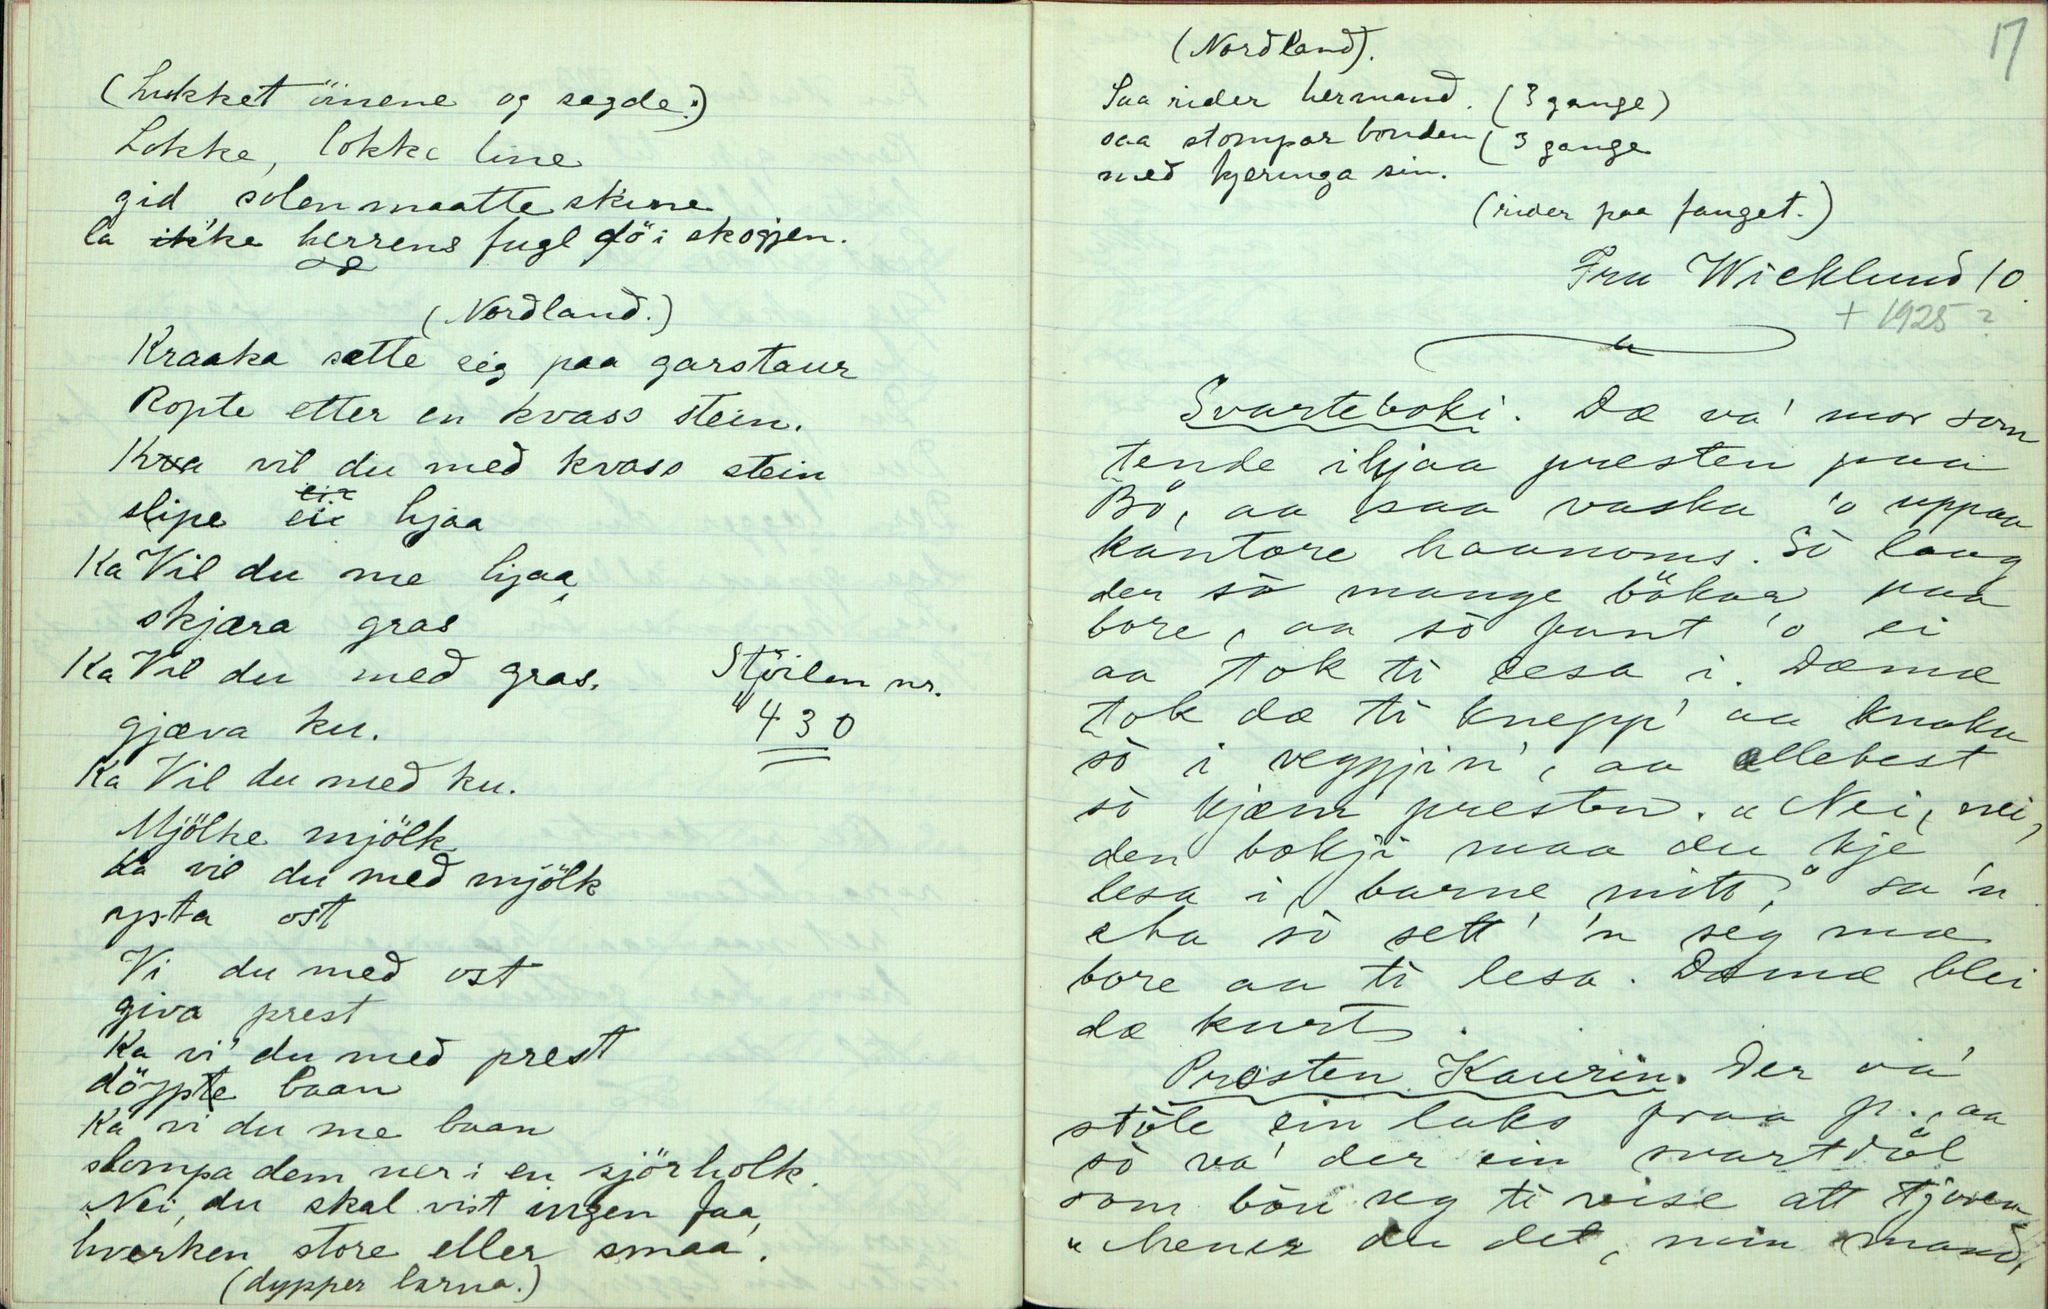 (Lukket öinene og sagde:)
Lokke, lokke line
gid solen maatte skine
la ikke herrens fugl dö i skogjen.
(Nordland.)
Kraaka sette seg paa garstaur
Ropte etter en kvass stein.
Kva vil du med kvass stein
slipe ein hjaa
Ka Vil du me ljaa,
skjæra gras
Ka Vil du med gras.
Stöilen nr.
gjæva ku.
430
Ka Vil du med ku.
Mjölke mjölk
Ka vil du med mjölk
ysta ost
Vi du med ost
giva prest
Ka vi' du med prest
döypte baan
Ka vi du me baan
slompa dem ner i en sjörholk.
Nei, du skal vist ingen faa,
hverken store eller smaa.
(dypper barna.)
17
(Nordland).
Saa rider hermand. (3 gange)
saa stompar bonden (3 gange
med kjeringa sin.
(rider paa fanget.)
Fru Wicklund 10.
+ 1925?
Svarteboki. Dæ va' mor som
tende ihjaa presten paa
Bö, aa saa vaska 'o uppaa
kantore haanoms. Sö laag
der sö mange bökar paa
bore, aa sö fant 'o ei
aa tok ti lesa i. Dæmæ
tok dæ ti knepp' aa knaka
sö i veggjin', aa allebest
sö kjæm presten. „Nei, nei,
den bokji maa du kje
lesa i, barne mitt," sa 'n
aa sö sett' 'n seg mæ
bore aa ti lesa. Dæmæ blei
dæ kurt.
Presten Kaurin. Der va'
stöle ein laks fraa p., aa
sö va' der ein svartdöl
som böu seg ti vise att tjöven
„Mener du det, min mand,